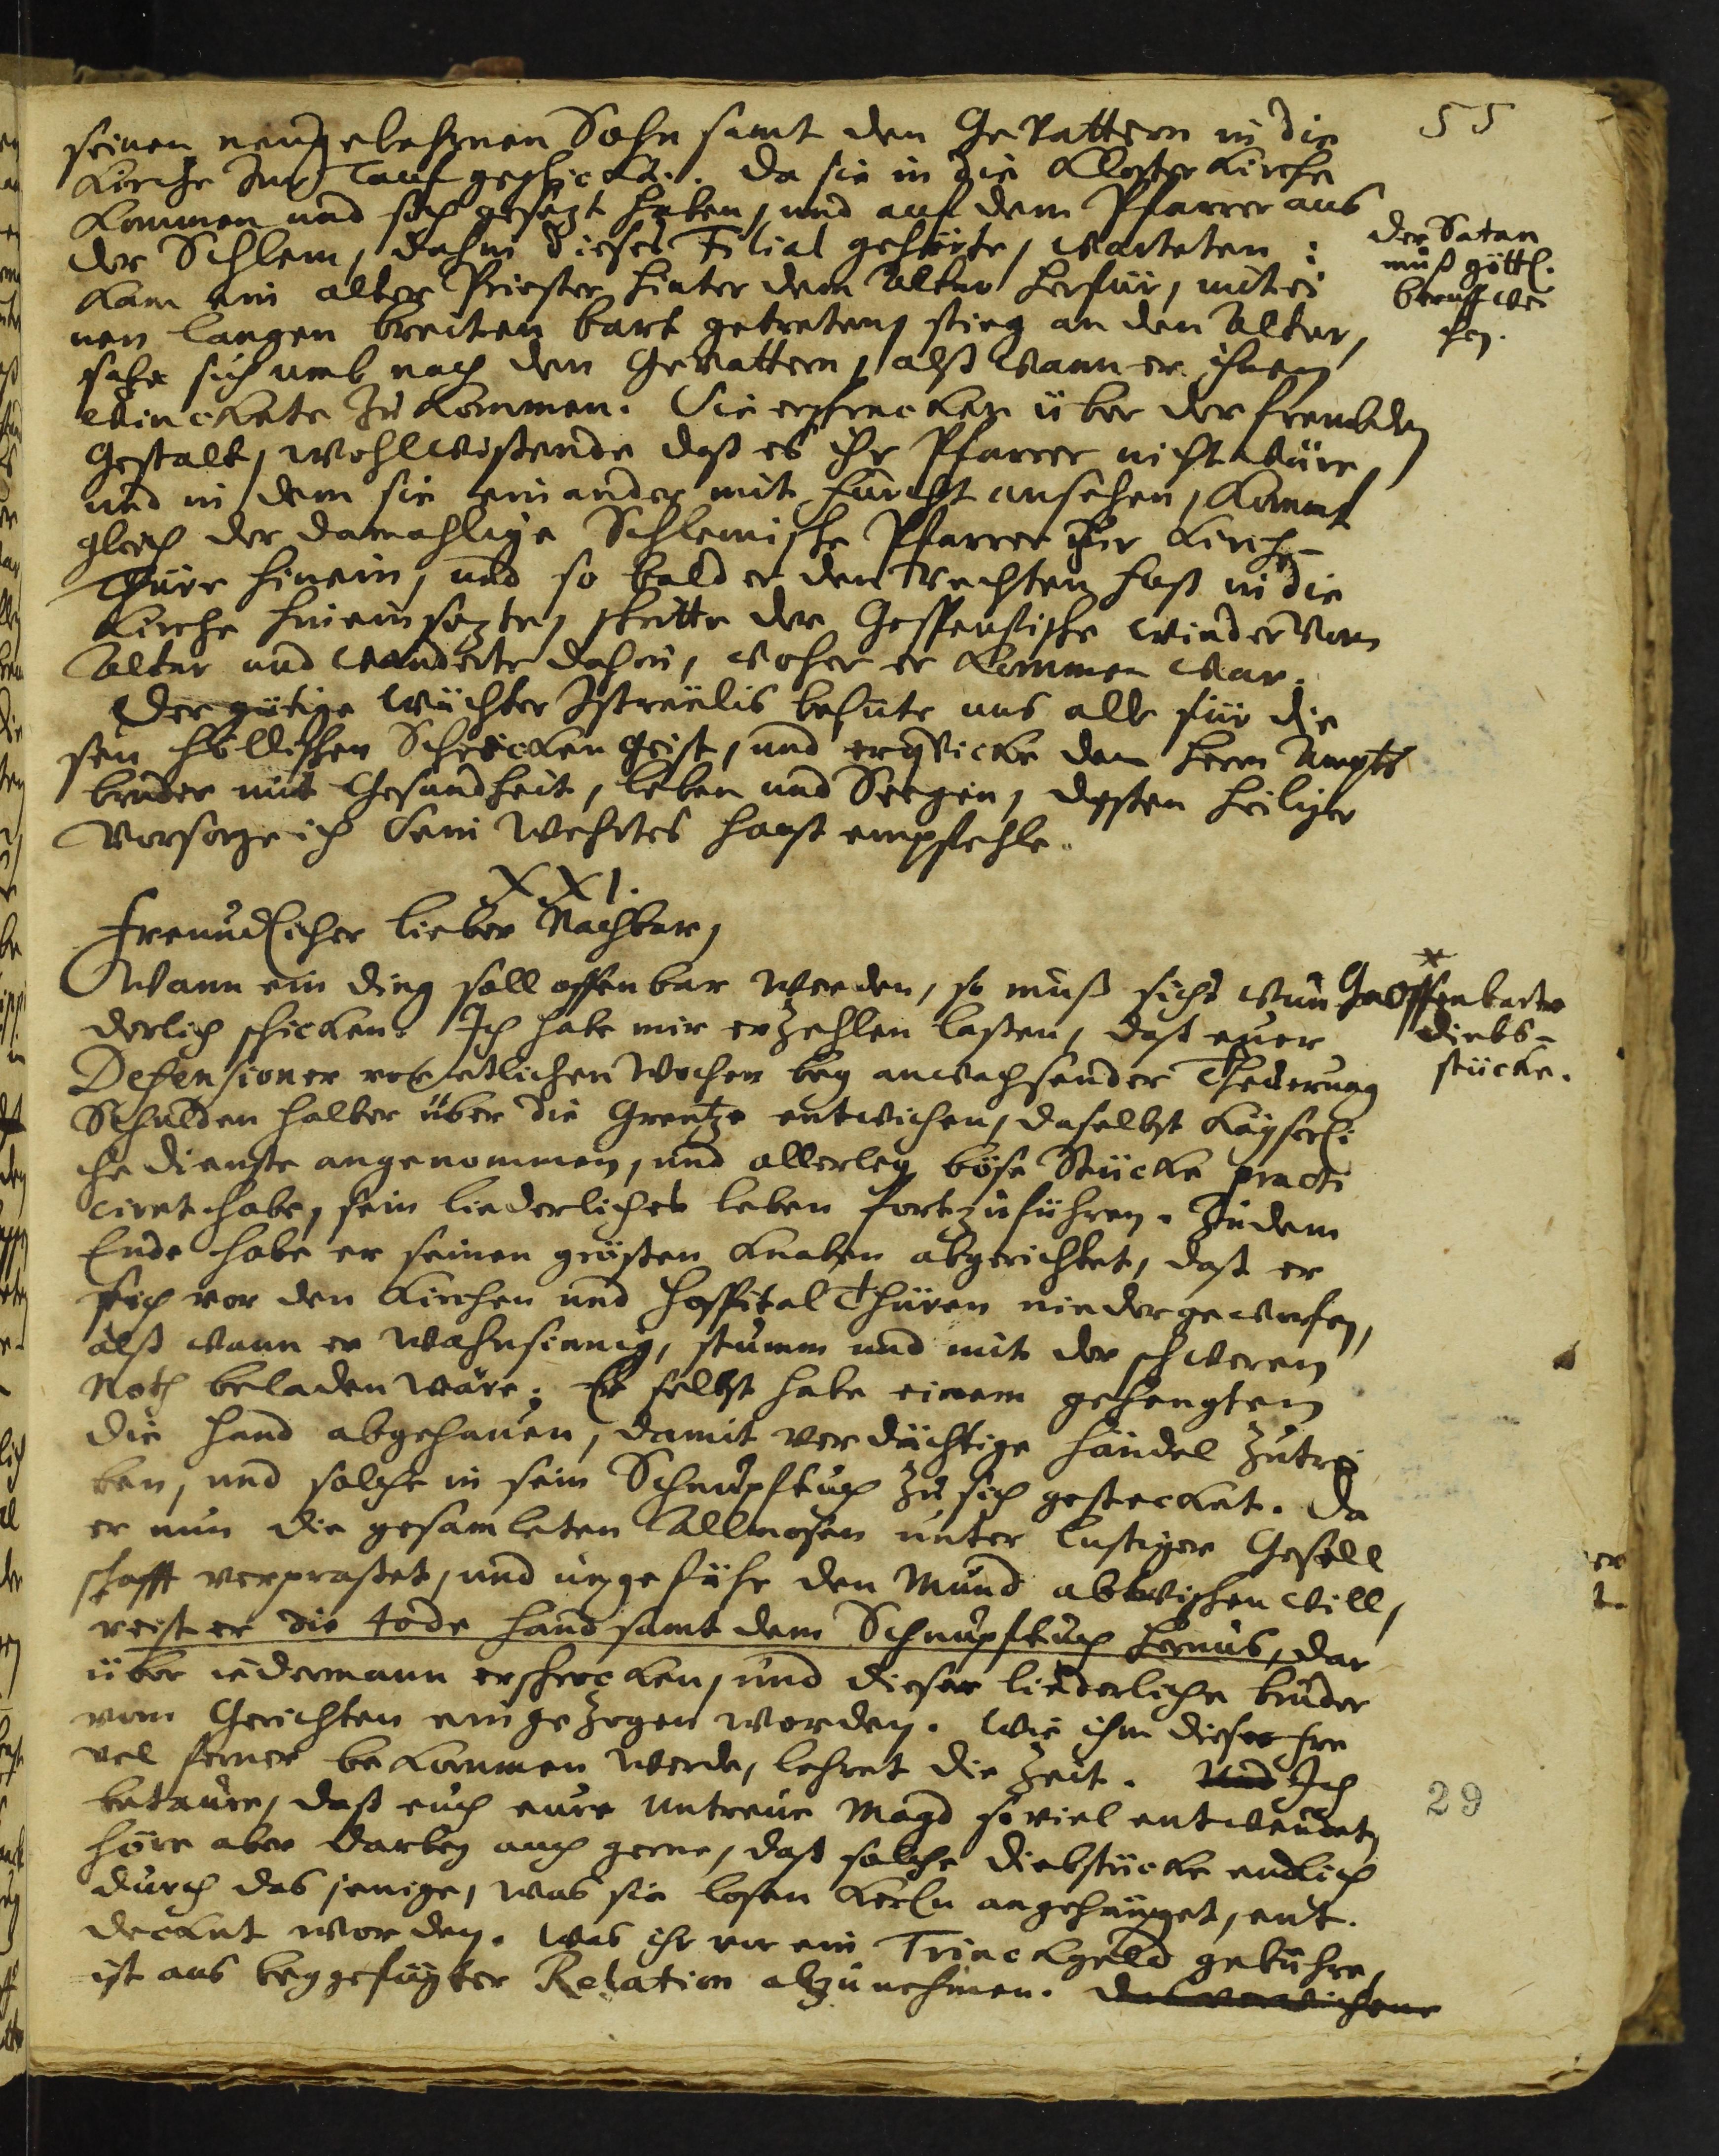 55
seinen neugebohrnen Sohn samt den Gevattern in die
Kirche zur Tauf geschickt. Da sie in die Klosterkirche
kommen und sich gesezt haben, und auf dem Pfarrer aus
der Schlem, dahin dieses Filial gehörte, warteten:
kam ein alter Priester hinter dem Altar herfür, mit ei
nen langen breiten bart getreten, stieg an den Altar,
sahe sich umb nach den Gevattern, alß wann er ihnen
winckete zu kommen. Sie erschracken über der frembden
Gestalt, wohlwißende daß es ihr Pfarrer nicht wäre,
und in dem sie einander mit furcht ansehen, kommt
gleich der damahlige Schlemische Pfarrer zur Kirch-
Thüre hinein, und so bald er den rechten fuß in die
Kirche hineinsezte, schritte der Gespenstische wieder vom
Altar und wanderte dahin, woher er kommen war.
Der gütige Wächter Israëlis behüte uns alle für die
sen höllischen Schrecken Geist, und erqvicke den Herrn Ampts
bruder mit Gesundheit, leben und Seegen, deßen heiliger
Vorsorge ich sein wehrtes hauß empfehle.
der Satan
muß göttl.
beruff wei
chen.
XXI.
Freundlicher lieber Nachbar,
Wann ein ding soll offenbar werden, so muß sichs wun
derlich schicken. Ich habe mir erzehlen laßen, daß euer
Defensioner vor etlichen Wochen bey anwachsender Theuerung
Schulden halber über die Grentze entwichen, daselbst Kayserli
che dienste angenommen, und allerley böse Stücke practi
ciret habe, sein liederliches leben fortzuführen. Zu dem
Ende habe er seinen grösten Knaben abgerichtet, daß er
sich vor den Kirchen und Hospital Thüren niedergeworfen,
alß wann er wahnsinnig, stumm und mit der schweren
Noth beladen wäre; Er selbst habe einem gehengten
die hand abgehauen, damit verdächtige händel zu trei
ben, und solche in sein Schnupftuch zu sich gestecket. Da
er nun die gesamleten Allmosen unter lustiger Gesell
schafft verpraßet, und ungefähr den Mund abwischen will,
reist er die tode hand samt dem Schnupftuch heraus, dar
über iedermann erschrocken, und dieser liederliche bruder
vom Gerichten eingezogen worden. Wie ihm dieser fre
vel ferner bekommen werde, lehret die Zeit. Und Ich
betaure, daß euch eure untreue Magd so viel entwendet,
höre aber darbey auch gerne, daß solche Diebstücke endlich
durch das jenige, was sie losen Kerln angehänget, ent.
decket worden. Was ihr vor ein Trinckgeld gebühre,
ist aus beygefügter Relation abzunehmen.
*
Geoffenbarte
diebs-
stücke.
29